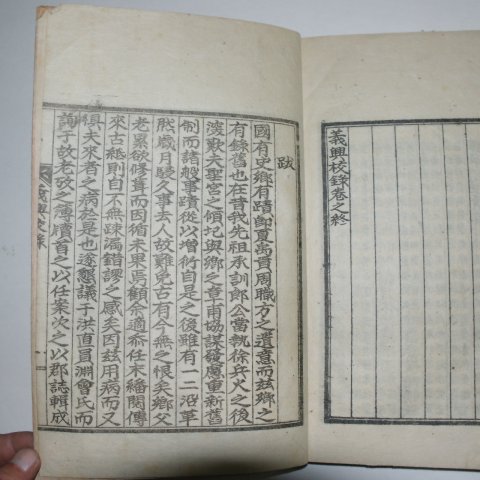 義興校錄卷之終
跋
國有史鄕有蹟卽夏禹貢周職方之遺意而玆鄕之
有錄舊也在昔我先祖承訓郞公當執徐兵火之後
深歎夫聖宮之傾圮與鄕之章甫協謀發慮重新舊
制而諸般事蹟從以增衍自是之後雖有一二沿革
然歲月寖久事去人故難免古有今無之恨矣鄕父
老累欲修葺而因循未果焉顧余適忝任末繙閱傳
來古紙則自不無疎漏錯謬之感矣因玆用病而又
懼夫來者之病於是也遂懇議于洪直員淵會氏而
詢于故老攷之溥牘首之以任案次之以郡誌輯成
義興校錄